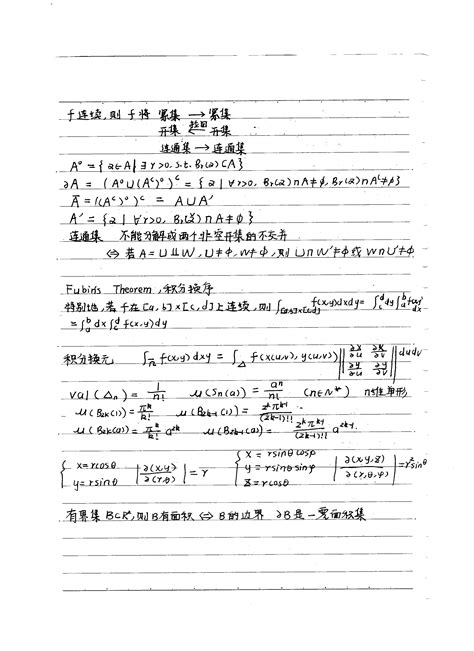 f连续,则 f 将 紧集 → 紧集
开集 拉回← 开集
连通集 → 连通集
A° = { a∈A | ∃ r>0, s.t. Br(a) ⊂ A }
∂A = (A° ∪ (Aᶜ)°)ᶜ = { a | ∀ r>0, Br(a)∩A≠∅, Br(a)∩Aᶜ≠∅ }
Ā = ((Aᶜ)°)ᶜ = A∪A'
A' = { a | ∀ r>0, Br(a)∩A≠∅ }
连通集 不能分解成两个非空开集的不交并
⇔ 若 A = U⊔W, U≠∅, W≠∅, 则 U∩W'≠∅ 或 W∩U'≠∅
Fubini's Theorem, 积分换序
特别地,若 f 在 [a,b]×[c,d] 上连续, 则 ∫[a,b]×[c,d] f(x,y)dxdy = ∫_c^d dy ∫_a^b f(x,y) dx
= ∫_a^b dx ∫_c^d f(x,y)dy
积分换元 f(x,y) dxy = ∫_Δ f(x(u,v), y(u,v)) || ∂x/∂u ∂x/∂v ∂y/∂u ∂y/∂v || dudv
val(Δn) = 1/n! μ(Sn(a)) = aⁿ/n! (n∈N*) n维单形
μ(B2k(1)) = πᵏ/k! μ(B2k-1(1)) = 2ᵏπᵏ⁻¹/(2k-1)!!
μ(B2k(a)) = πᵏ/k! a²ᵏ μ(B2k-1(a)) = 2ᵏπᵏ⁻¹/(2k-1)!! a²ᵏ⁻¹
{ x = rcosθ y = rsinθ |∂(x,y)/∂(r,θ)| = r { x = rsinθcosφ y = rsinθsinφ z = rcosθ |∂(x,y,z)/∂(r,θ,φ)| = r²sinθ
有界集 B⊂Rⁿ, 则 B有面积 ⇔ B的边界 ∂B 是一零面积集